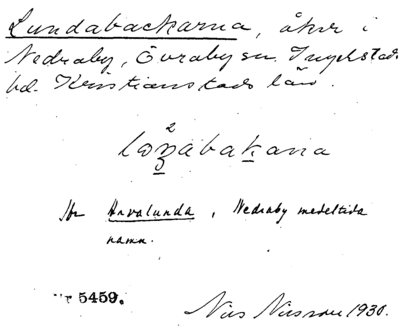 Lundabackarna, åker i
Nedraby, Övraby sn. Ingelstads
hd. Kristianstads län.
2
Jfr Arvalunda, Nedraby medeltida
namn.
Nr 5459.
Nils Nilsson 1930.